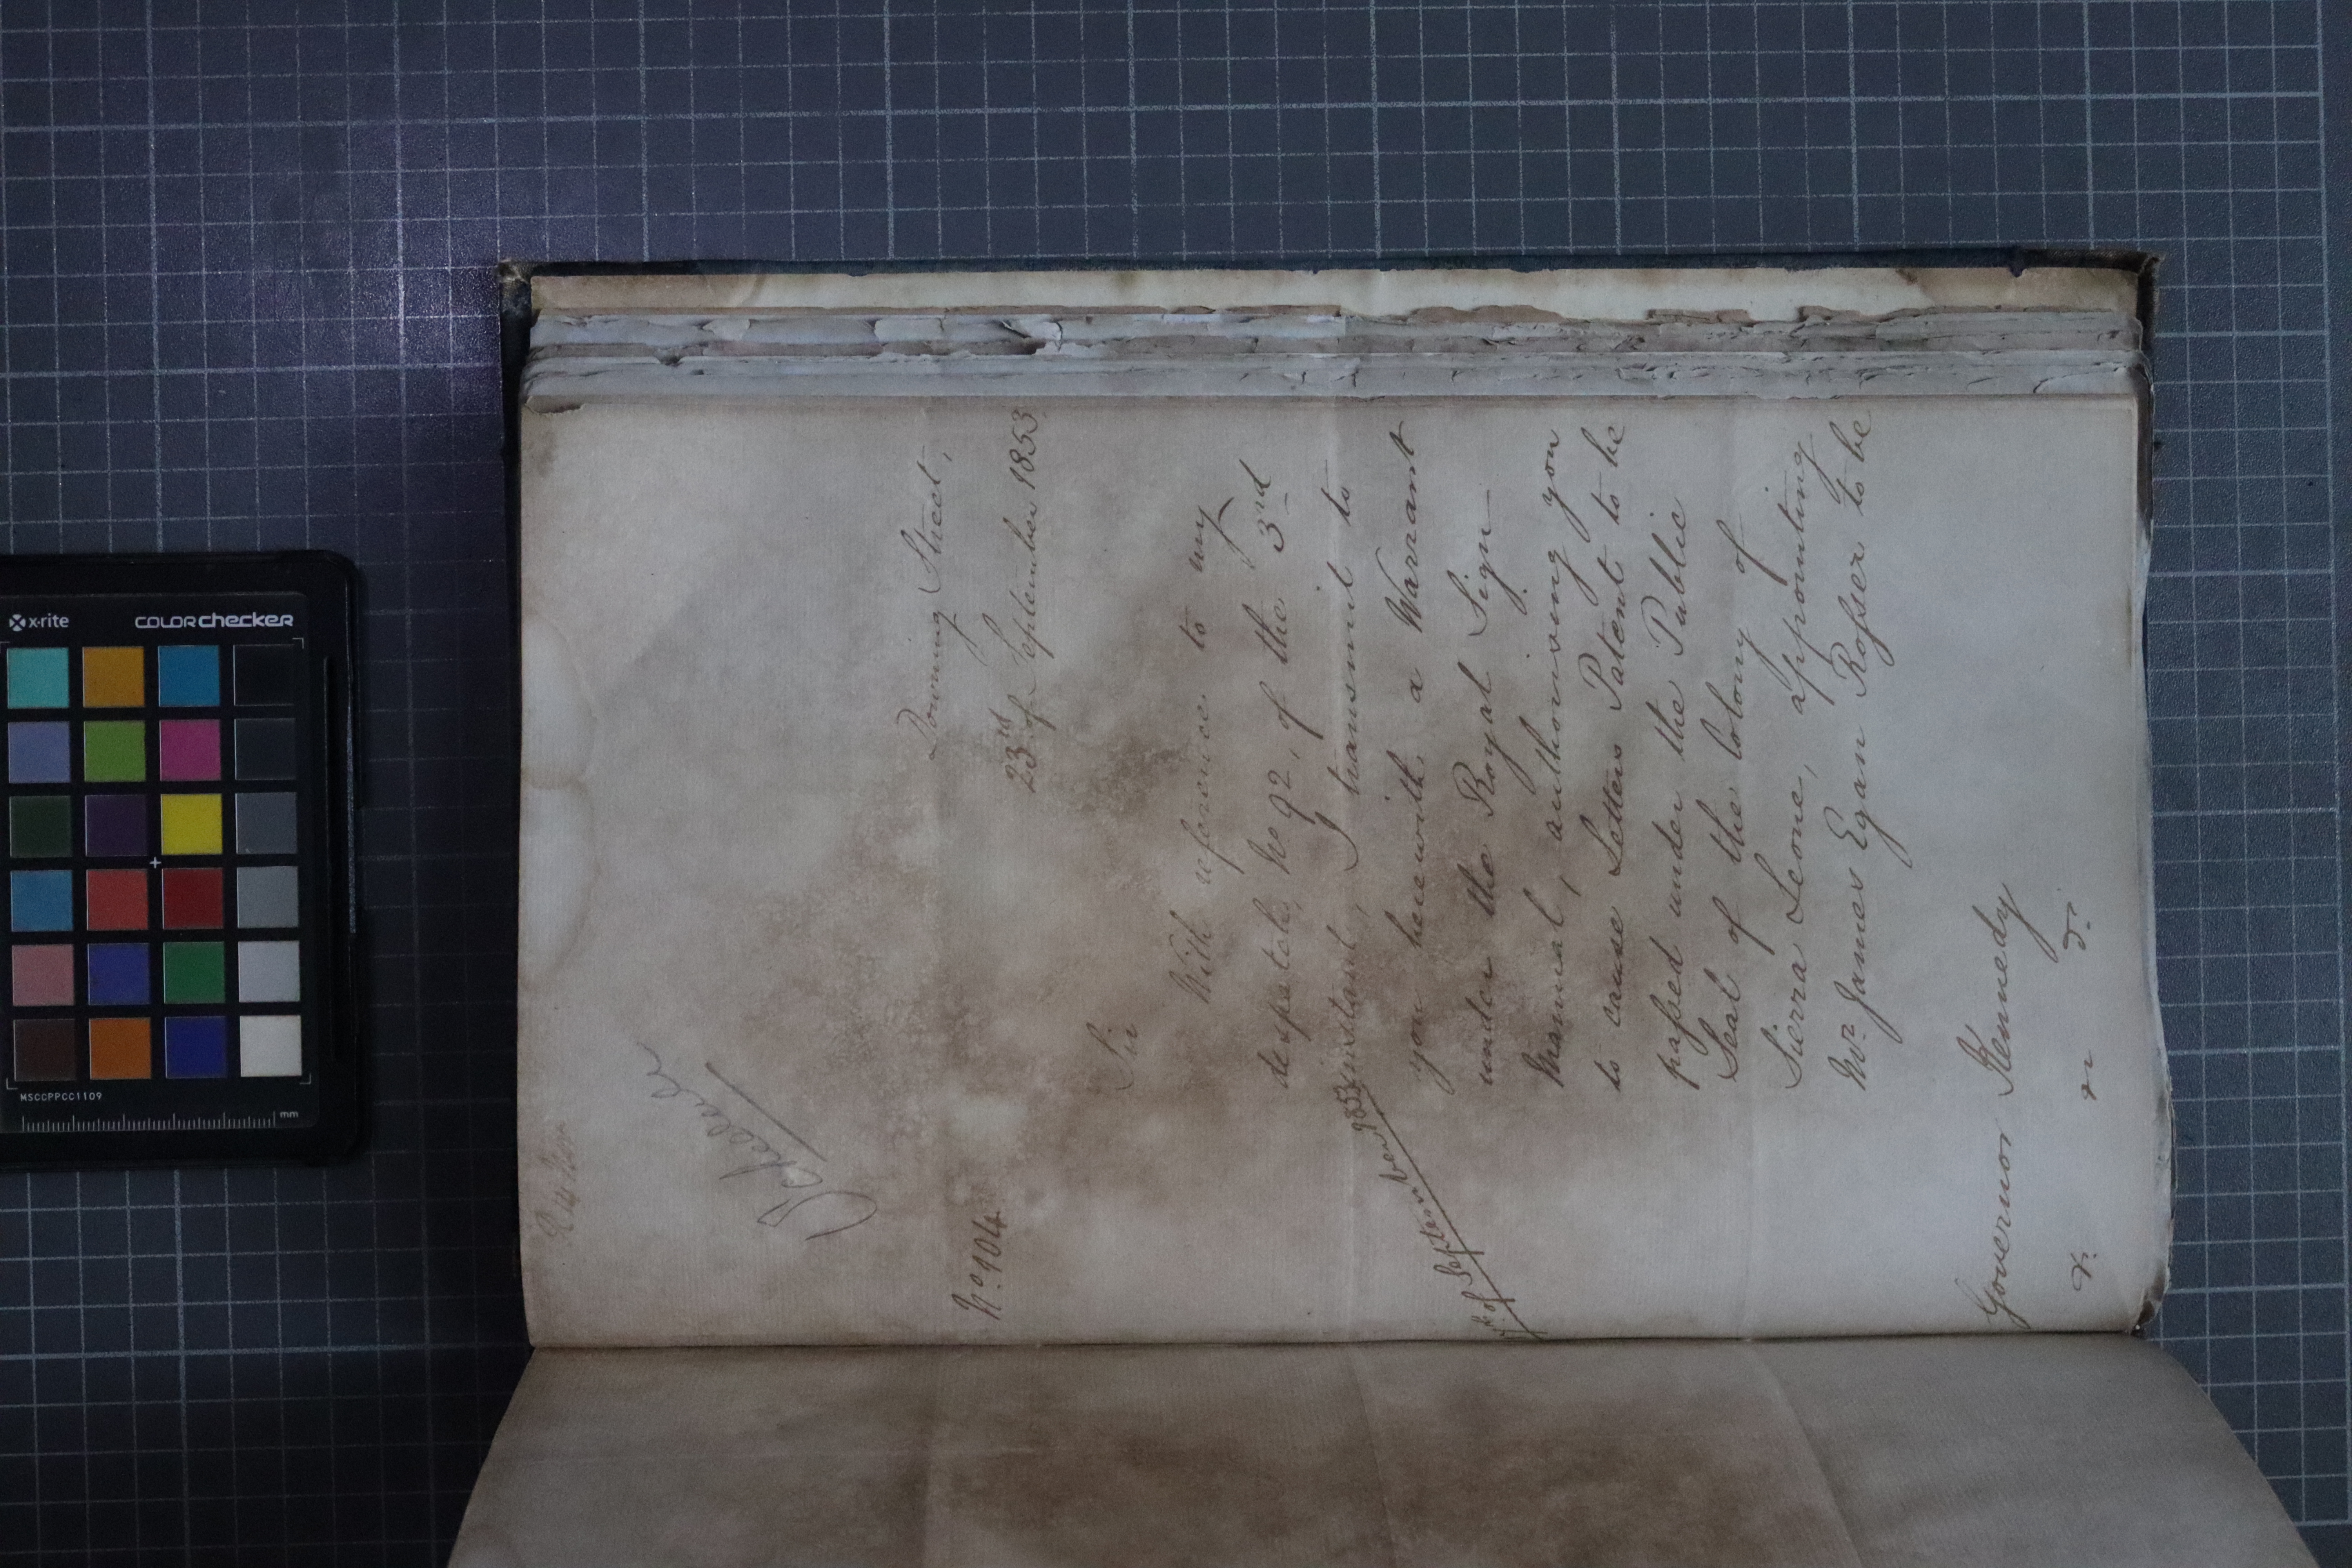 Schedule
No. 104
Downing Street,
23rd of September 1853
Sir
With reference to my
despatch, No 92, of the 3rd
instant, I transmit to
you herewith a Warrant
under the Royal Sign
Manual, authorising you
to cause Letters Patent to be
passed under the Public
Seal of the Colony of
Sierra Leone, appointing
Mr. James Egan Rosser to be
of September 1853
Governor Kennedy
&c &c &c
x-rite
colorchecker
MSCCPPCC1109
mm